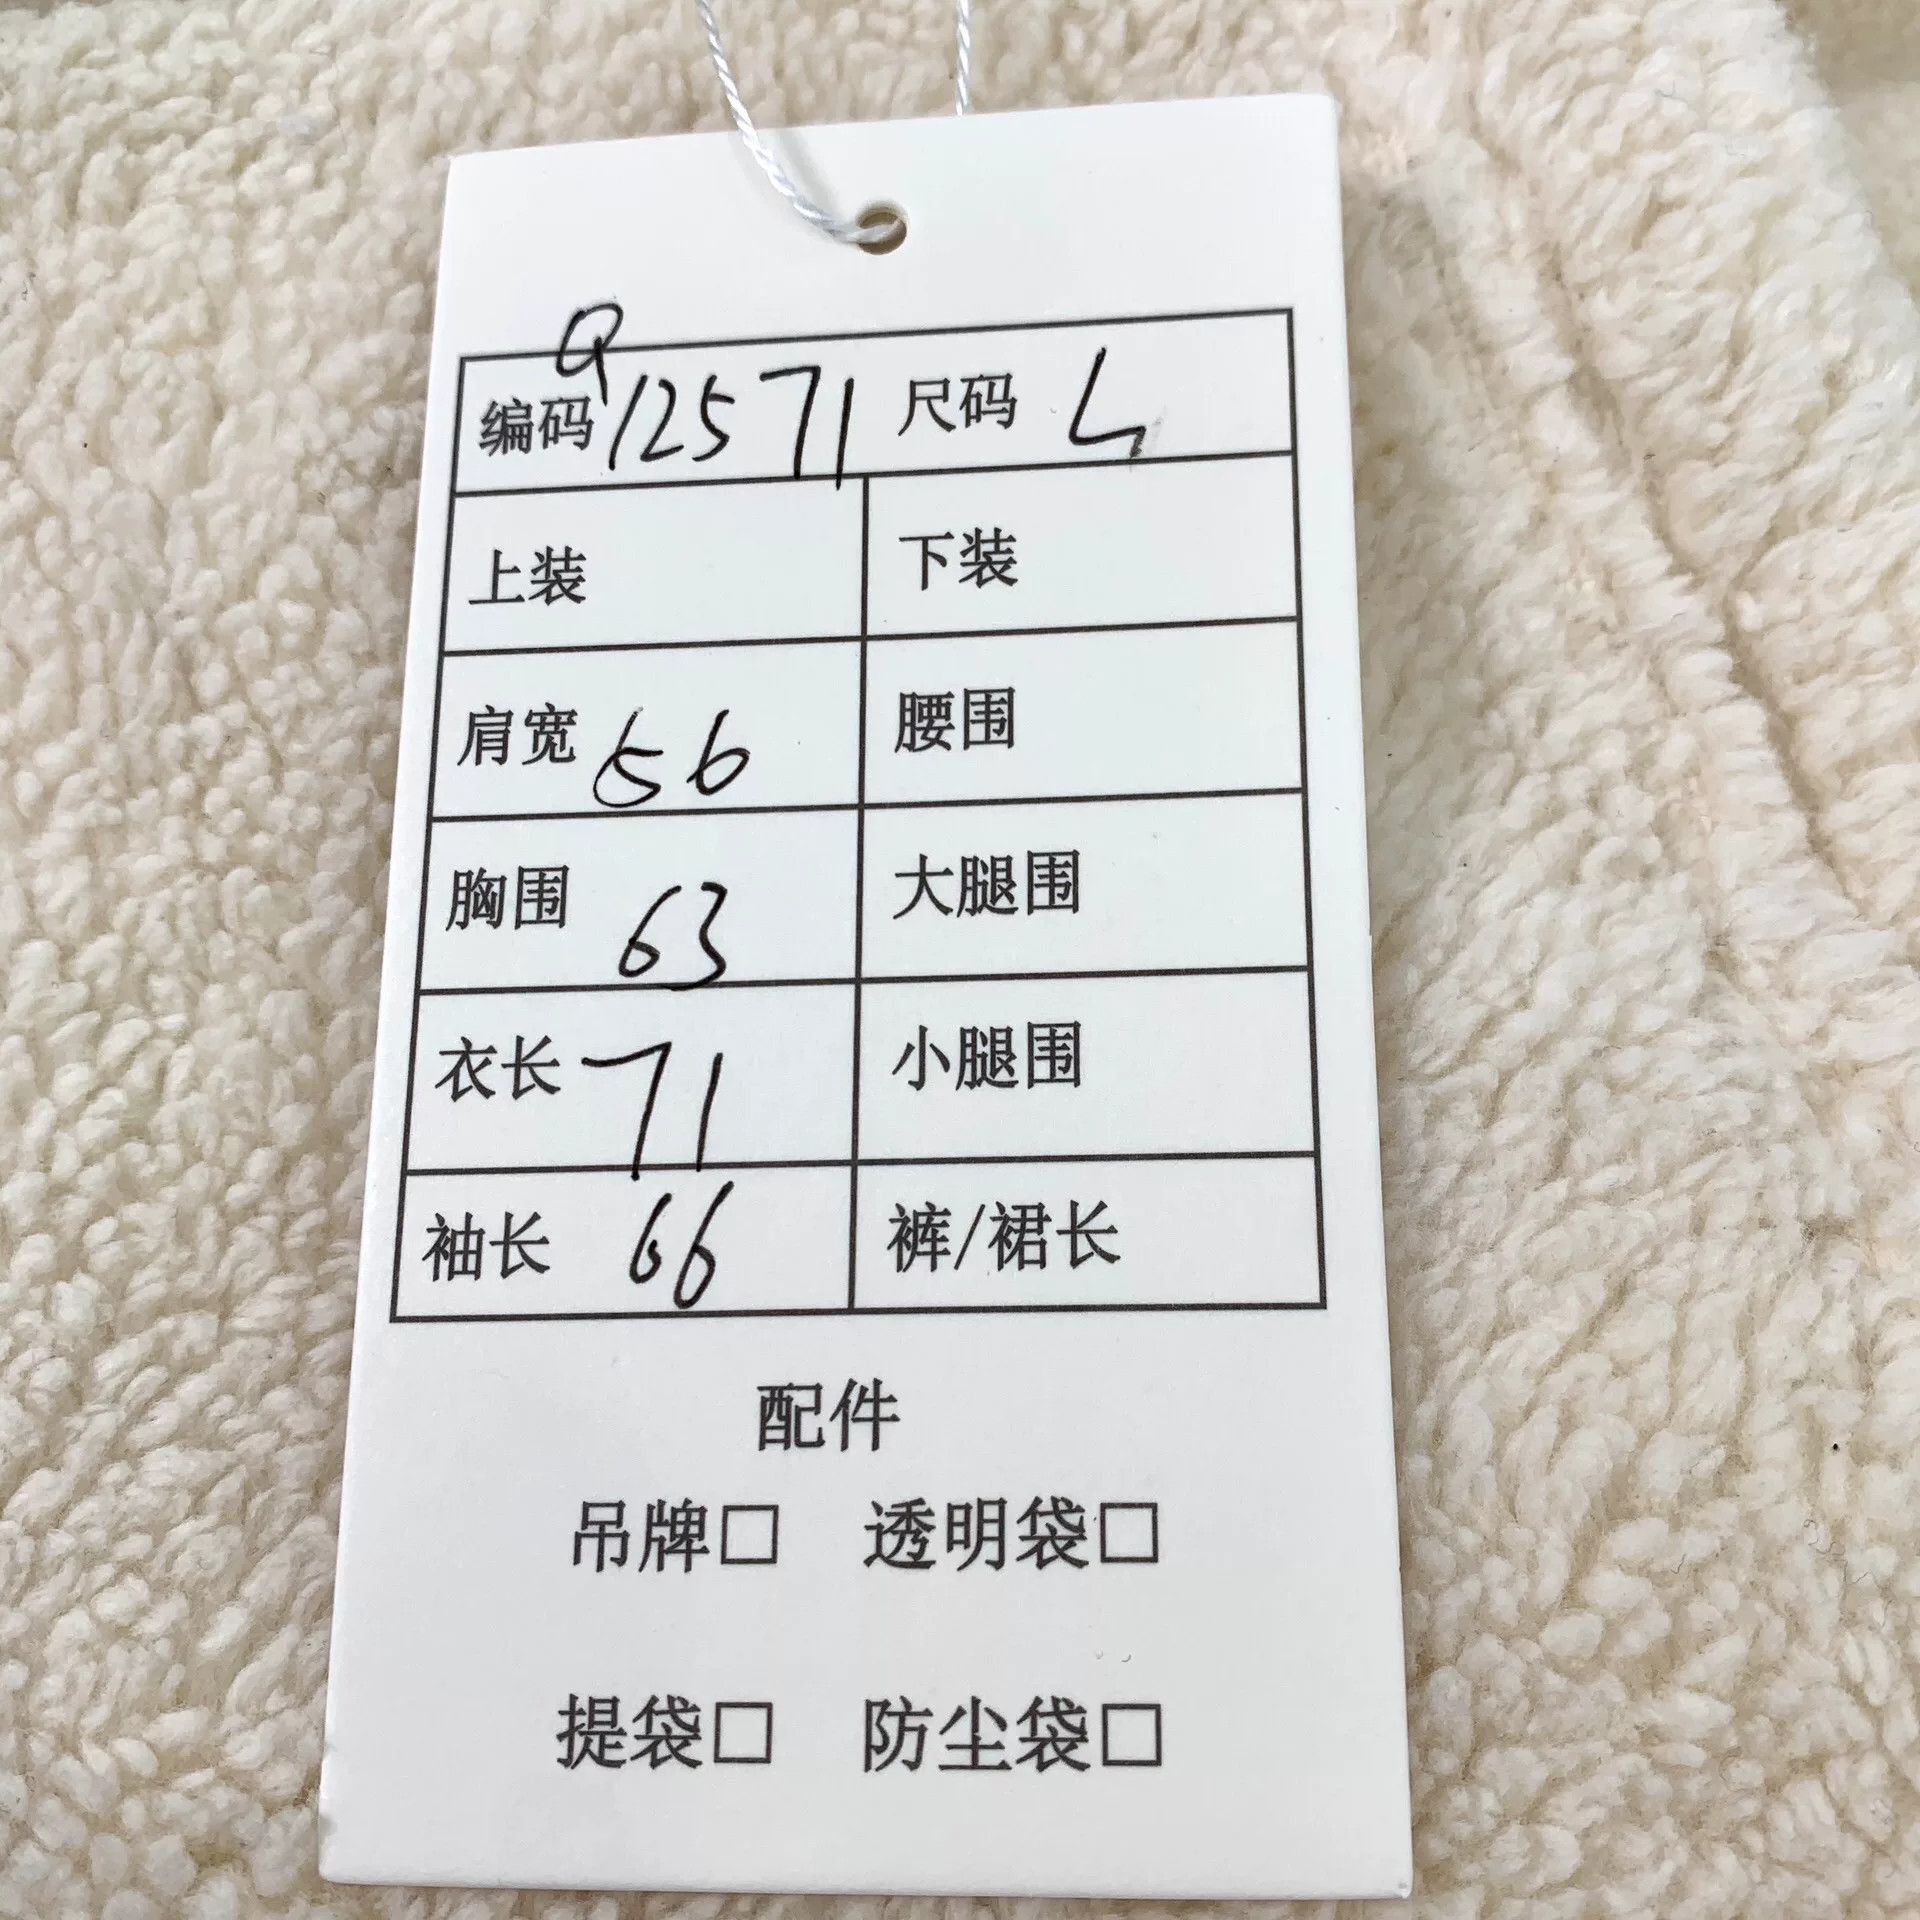 编码 Q12571 尺码 L
上装 下装
肩宽 56 腰围
胸围 63 大腿围
衣长 71 小腿围
袖长 66 裤/裙长
配件
吊牌□ 透明袋□
提袋□ 防尘袋□